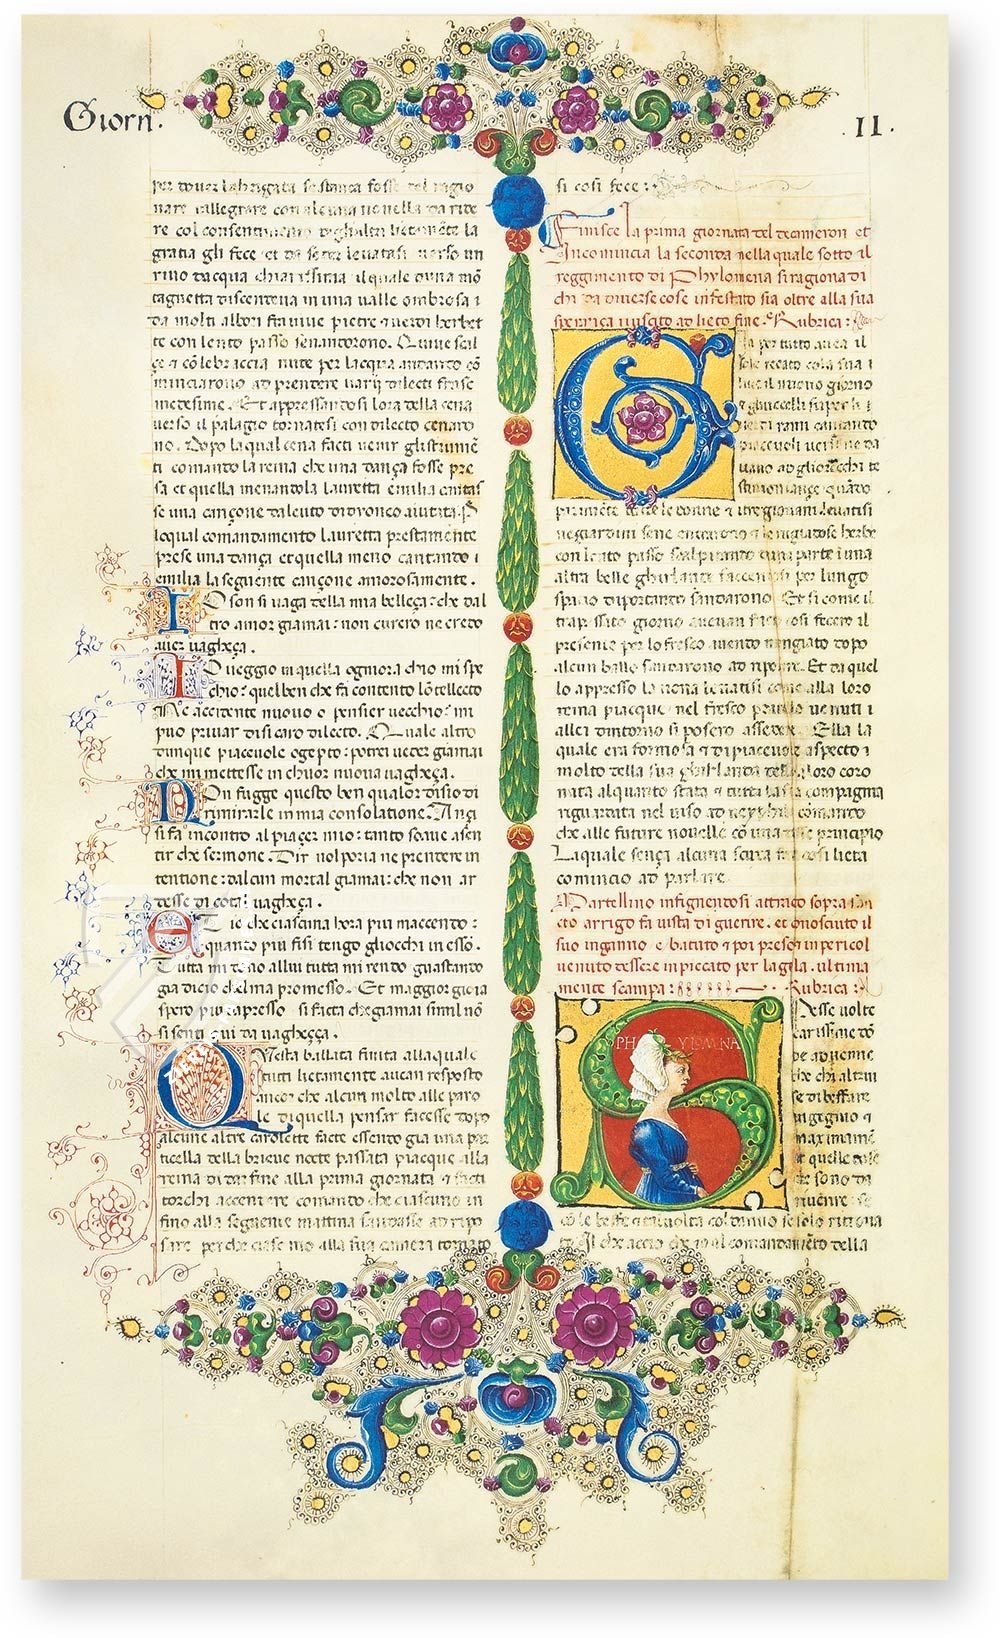 Giorn.
.II.
per dover la brigata se stanca fosse del ragio
nare rallegrare con alcuna novella da ride
re col consentimento degli altri lietamente la
gratia gli fece et da seder levatasi verso un
rivo dacqua chiarissima il quale duna mō
tagnetta discendeva in una valle ombrosa i
da molti albori fra vive pietre e verdi herbet
te con lento passo senandorono. Quive scal
çe et cō le braccia nute per lacqua andando cō
minciarono ad prendere varij dilecti fra se
medesime. Et appressandosi lora della cena
verso il palagio tornatesi con dilecto cenaro
no. Dopo la qual cena facti venir gli strumē
ti comandò la reina che una dança fosse pre
sa et quella menandola lauretta emilia cantas
se una cançone da leuto di dyoneo aiutata. P
lo qual comandamento lauretta prestamente
prese una dança et quella meno cantando i
emilia la seguente cançone amorosamente.
IO son si vaga della mia belleça: che dal
tro amor giamai: non curero ne credo
aver vagheça.
IO veggio in quella ognora chio mi spe
chio: quel ben che fa contento lōtellecto
Ne accidente nuovo o pensier vecchio: mi
puo privar di si caro dilecto. Quale altro
dunque piacevole ogepto: potrei veder giamai
che mi mettesse in chuor nuova vagheça.
NOn fugge questo ben qualor disio di
rimirarle in mia consolatione. Ançi
si fa incontro al piaçer mio: tanto soave a sen
tir che sermone. Dir nol poria ne prendere in
tentione: dalcun mortal giamai: che non ar
desse di cotal vagheça.
ET io che ciascuna hora piu maccendo:
quanto piu fisi tengo gliocchi in esso.
Tutta mi dono allui tutta mi rendo guastando
gia di cio chel ma promesso. Et maggior gioia
spero piu dapresso si facta che giamai simil nō
si senti qui da vagheçça.
QVesta ballata finita alla quale
tutti lietamente avean resposto
ancor che alcun molto alle paro
le di quella pensar facesse dopo
alcune altre carolette facte essendo gia una par
ticella della brieve nocte passata piacque alla
reina di dar fine alla prima giornata et facti
torchi accendere comando che ciascuno in
fino alla seguente mattina sandasse ad ripo
sare per che ciascuno alla sua camera tornato
si cosi fece:
Finisce la prima giornata del decameron et
Incomincia la seconda nella quale sotto il
reggimento di Phylomena si ragiona di
chi da diverse cose infestato sia oltre alla sua
sperança uscito ad lieto fine. Rubrica:
Gia per tutto avea il
sole recato colla sua i
luce il nuovo giorno
e gluccelli su per li i
verdi rami cantando
piacevoli versi ne da
vano ad gliorecchi te
stimoniançe quādo
parimēte tutte le donne e i tre giovani levatisi
ne giardini sene entrarono e le rugiadose herbe
con lento passo scalpitando duna parte i una
altra belle ghirlande faccendosi per lungo
spatio diportando sandarono. Et si come il
trapassato giorno avevan facto cosi fecero il
presente per lo fresco avendo mangiato dopo
alcun ballo sandarono ad riposare. Et da quel
lo appresso la nona levatisi come alla loro
reina piacque nel fresco pratello venuti i
allei dintorno si posero assedere. Ella la
quale era formosa e di piacevole aspecto i
molto della sua ghirlanda dello aloro coro
nata alquanto stata e tutta la sua compagnia
riguardata nel viso ad neyphile comando
che alle future novelle cō una desse principio
La quale sença alcuna scusa fare cosi lieta
comincio ad parlare.
Martellino infignentosi attracto sopra san
cto arrigo fa vista di guerire. et conosciuto il
suo inganno e batuto e poi preso et in pericol
venuto dessere inpiccato per la gola. ultima
mente scampa: Rubrica:
PHYLOMNA
SPesse volte
carissime dō
ne advenne
che chi altrui
se di beffare
ingegnio e
maximamē
te quelle cose
che sono da
riverire se
co le beffe e talvolta col danno se solo ritrova
to. Il che accio che io al comandamēto della